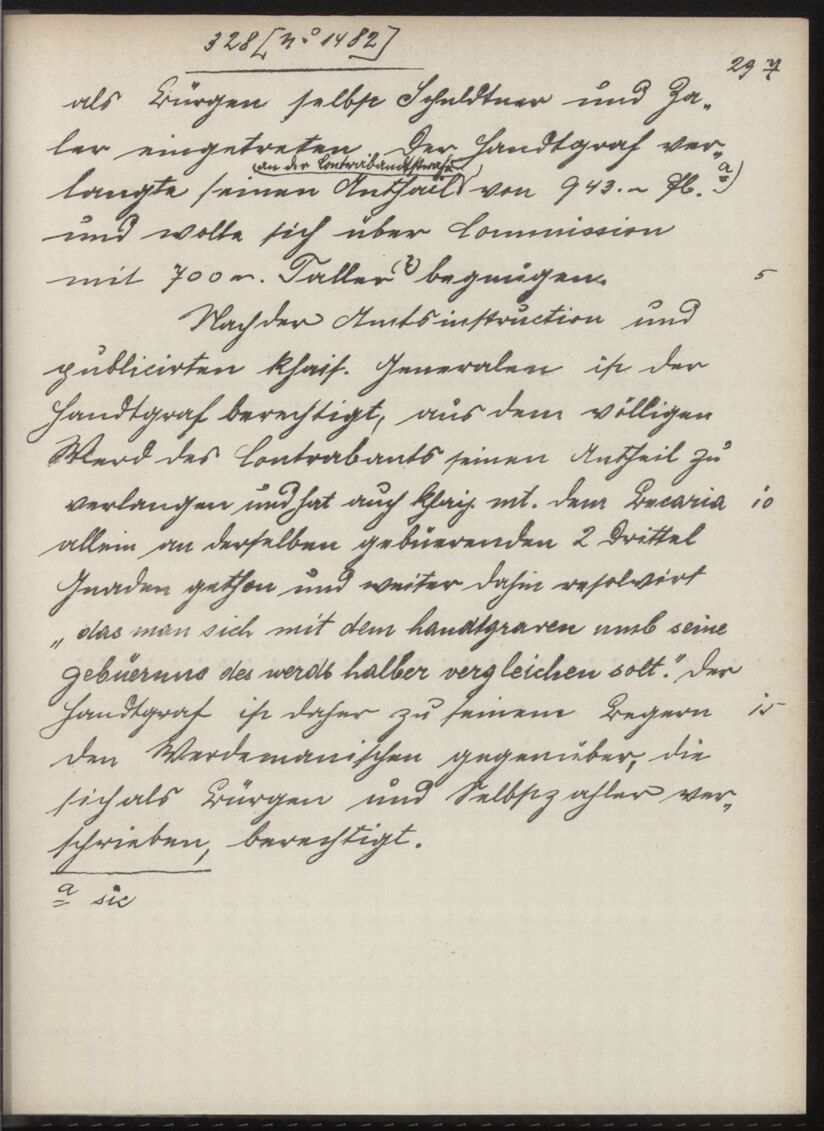 328 [No 1482]
297
als Bürgen selbst Schuldtner und Za„
ler eingetreten. Der Handtgraf ver„
an der Contrabantstrafe
langte seinen Antheil von 943.– fl. a)
und wolte sich über Commission
mit 700 –. Taller (?) begnügen. 5
Nach der Amtsinstruction und
publicirten khais. Generalen ist der
Handtgraf berechtigt, aus dem völligen
Werd des Contrabants seinen Antheil zu
verlangen und hat auch khais. mt. dem Becaria 10
allein an derselben gebüerenden 2 Drittel
Gnaden gethon und weiter dahin resolvirt
„das man sich mit dem handtgraven umb seine
gebüernus des werds halber vergleichen solt." Der
Handtgraf ist daher zu seinem Begern 15
den Werdemanischen gegenüber, die
sich als Bürgen und Selbstzahler ver„
schrieben, berechtigt.
a sic